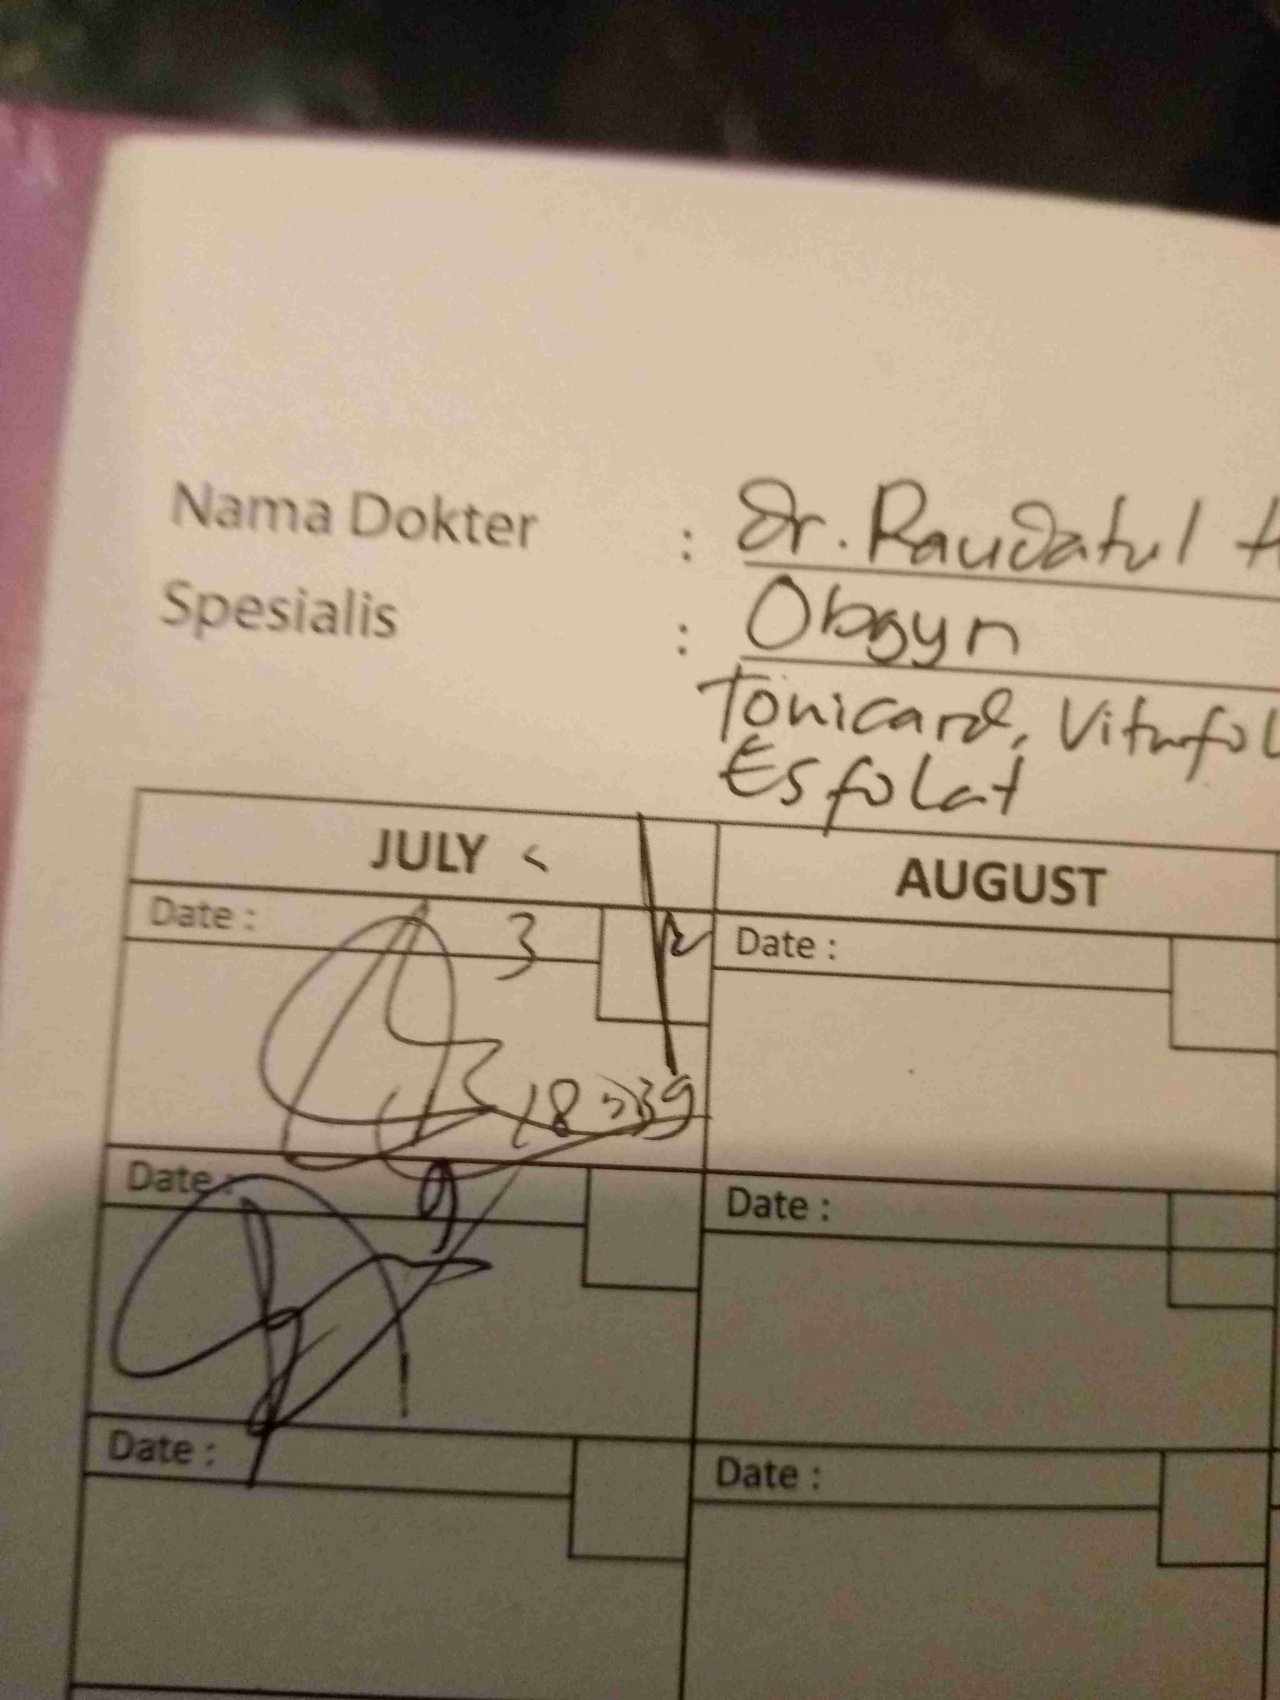 Nama Dokter : Dr. Raudatul
Spesialis : Obgyn
Tonicard, Viturfol
Esfolat
JULY AUGUST
Date : 3 Date :
18 39
Date : 9 Date :
Date : Date :